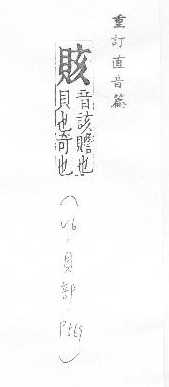 重訂直音篇
賅音該贍也
貝也奇也
(V6.貝部.P269)